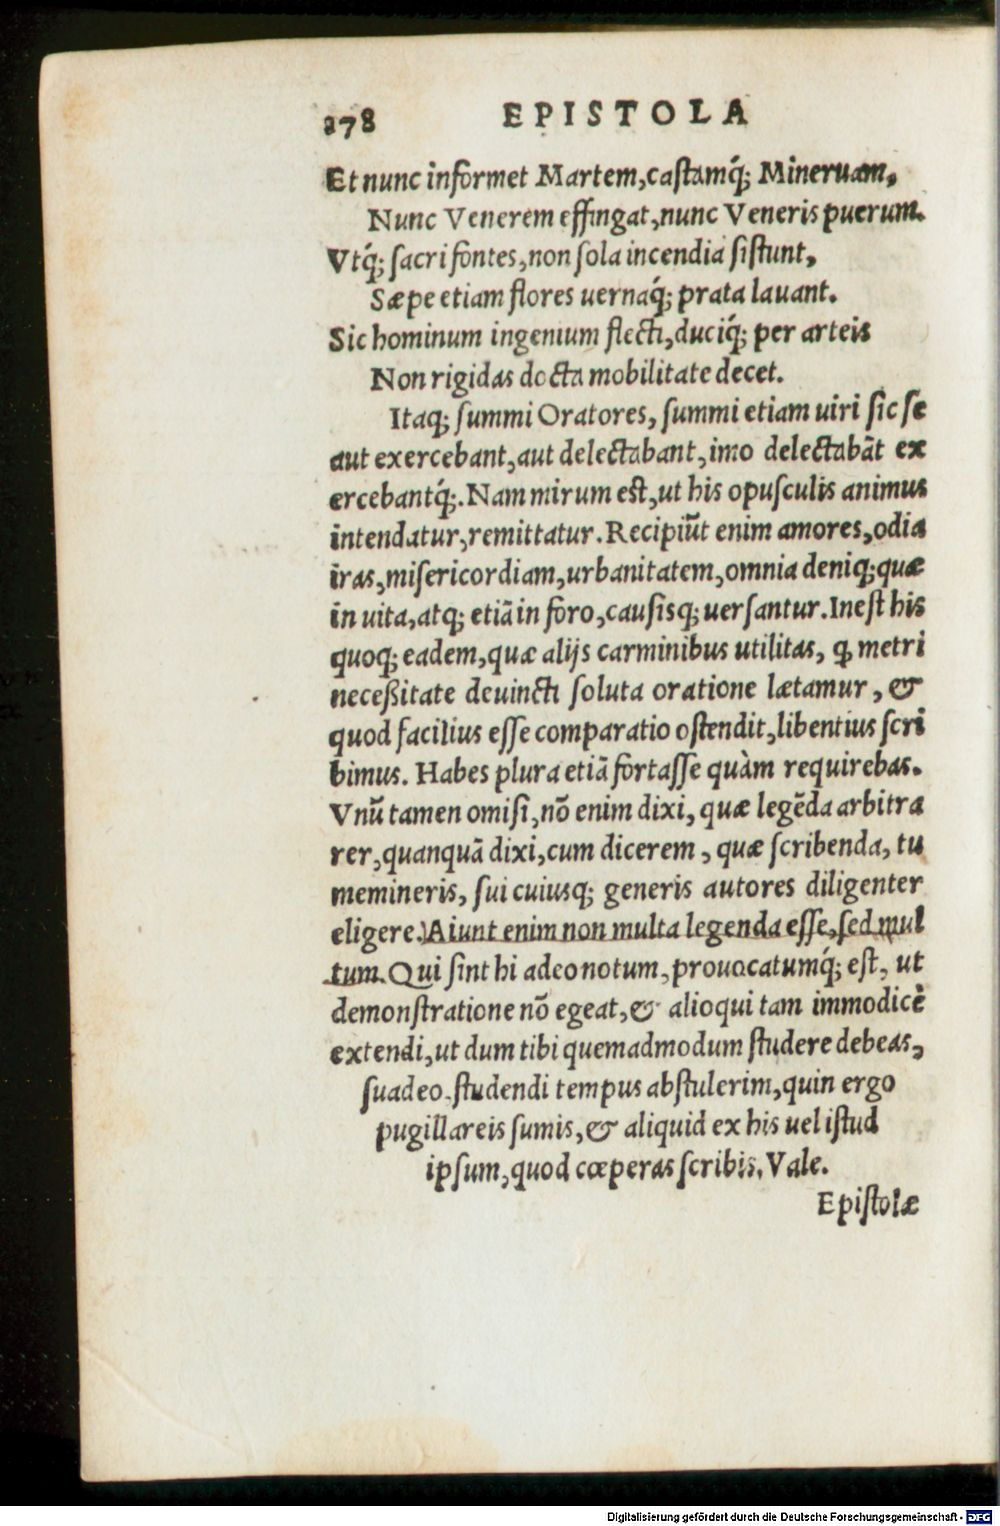 278 EPISTOLA
Et nunc informet Martem, castamq́; Mineruam,
Nunc Venerem effingat, nunc Veneris puerum.
Vtq́; sacri fontes, non sola incendia sistunt,
Sæpe etiam flores uernaq́; prata lauant.
Sic hominum ingenium flecti, duciq́; per arteis
Non rigidas docta mobilitate decet.
Itaq; summi Oratores, summi etiam uiri sic se
aut exercebant, aut delectabant, imo delectabãt ex
ercebantq́;. Nam mirum est, ut his opusculis animus
intendatur, remittatur. Recipiũt enim amores, odia
iras, misericordiam, urbanitatem, omnia deniq; quæ
in uita, atq; etiã in foro, causisq; uersantur. Inest his
quoq; eadem, quæ alijs carminibus utilitas, ꝙ metri
neceßitate deuincti soluta oratione lætamur, &
quod facilius esse comparatio ostendit, libentius scri
bimus. Habes plura etiã fortasse quàm requirebas.
Vnũ tamen omisi, nõ enim dixi, quæ legẽda arbitra
rer, quanquã dixi, cum dicerem, quæ scribenda, tu
memineris, sui cuiusq; generis autores diligenter
eligere. Aiunt enim non multa legenda esse, sed mul
tum. Qui sint hi adeo notum, prouocatumq́; est, ut
demonstratione nõ egeat, & alioqui tam immodicè
extendi, ut dum tibi quemadmodum studere debeas,
suadeo. studendi tempus abstulerim, quin ergo
pugillareis sumis, & aliquid ex his uel istud
ipsum, quod cœperas scribis. Vale.
Epistolæ
Digitalisierung gefördert durch die Deutsche Forschungsgemeinschaft - DFG